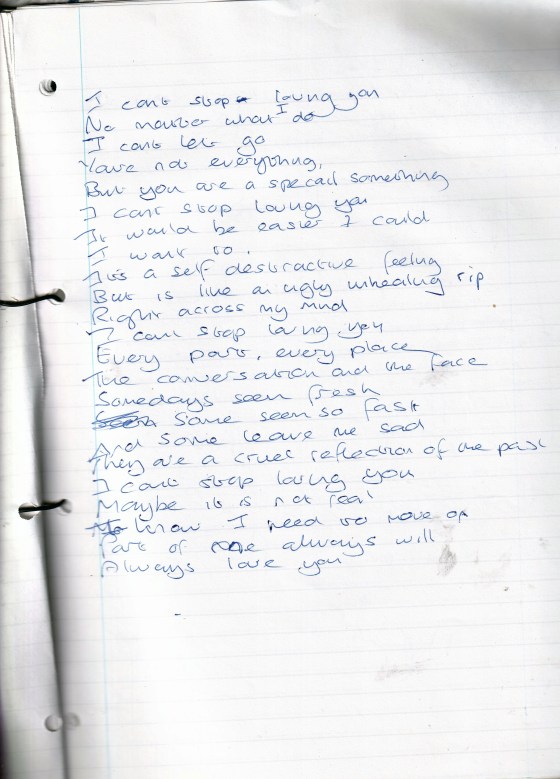 I cant stop loving you
No matter what I do
I cant let go
Youre not everything,
But you are a speciel something
I cant stop loving you
It would be easier I could
I want to.
Its a self destructive feeling
But is like an ugly unhealing rip
Right across my mind
I cant stop loving you
Every part, every place
The conversation and the face
Somedays seem fresh
Some seem so fast
And some leave me sad
They are a cruel reflection of the past
I cant stop loving you
Maybe it is not real
know I need to move on
Part of me always will
Always love you